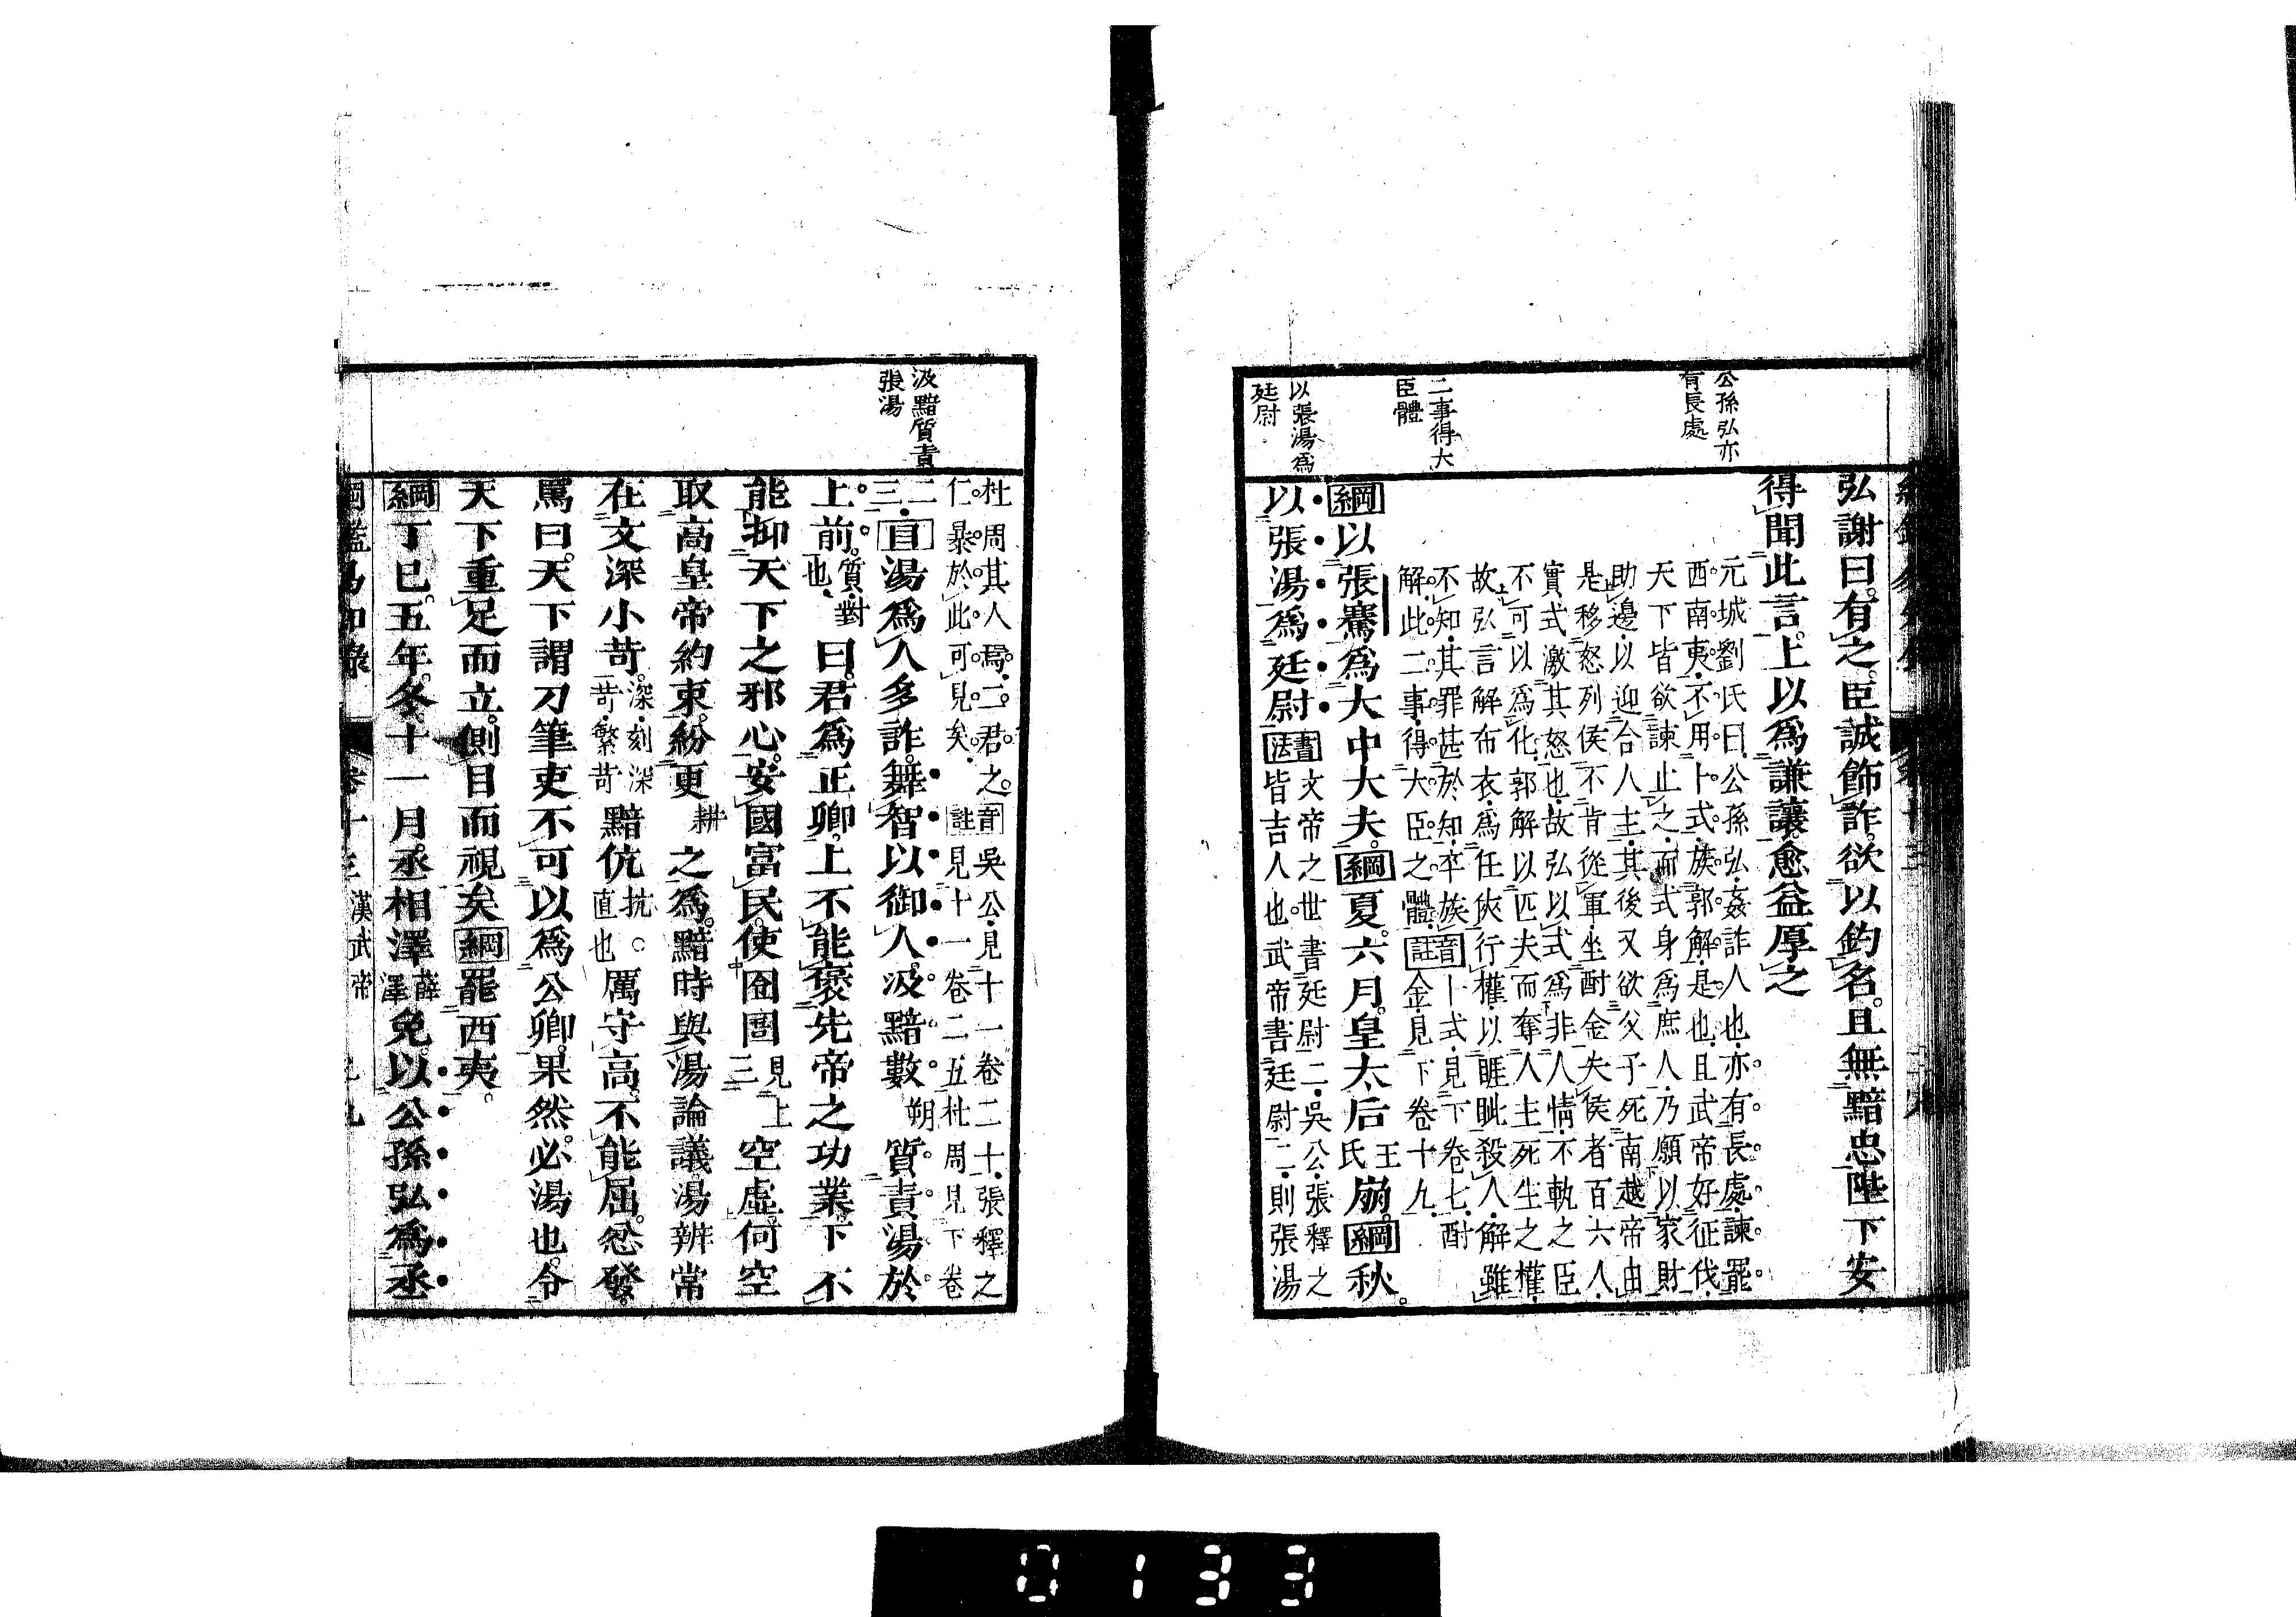 公孫弘亦
有長處
二事得大
臣體
以張湯爲
廷尉
弘謝曰。有之。臣誠飾詐。欲以釣名。且無黯忠。陛下安
得聞此言。上以爲謙讓。愈益厚之
元城劉氏曰。公孫弘。姦詐人也。亦有長處。諫罷
西南夷。不用卜式。族郭解是也。且武帝好征伐。
天下皆欲諫止之。而式身爲庶人。乃願以家財
助邊。以迎合人主。其後又欲父子死南越。帝由
是移怒列侯不肯從軍。坐酎金失侯者百六人。
實式激其怒也。故弘以式爲非人情。不軌之臣
不可以爲化。郭解以匹夫而奪人主死生之權。
故弘言解布衣。爲任俠行權。以睚眦殺人。解雖
不知。其罪甚於知。卒族音卜式。見下卷七。酎
解。此二事。得大臣之體。註金。見下卷十九。
綱以張騫爲大中大夫。綱夏。六月。皇太后王氏崩。綱秋。
以張湯爲廷尉書法文帝之世。書廷尉二。吳公。張釋之
皆吉人也。武帝書廷尉二。則張湯
汲黯質責
張湯
杜周其人焉。二君之音吳公。見十一卷二十。張釋之
仁暴。於此可見矣。註見十一卷二五。杜周見下卷
二三。目湯爲人多詐。舞智以御人。汲黯數朔質責湯於
上前。質。對也。曰。君爲正卿。上不能褒先帝之功業。下不
能抑天下之邪心。安國富民。使囹圄見上三空虛。何空
取高皇帝約束。紛更耕之爲。黯時與湯論議。湯辨常
在文深小苛。深。刻深苛。繁苛黯伉抗。直也。厲守高。不能屈。忿發
罵曰。天下謂刀筆吏不可以爲公卿。果然。必湯也。令
天下重足而立。側目而視矣綱罷西夷。
綱丁巳。五年。冬。十一月。丞相澤薛澤免。以公孫弘爲丞
漢武帝
0133